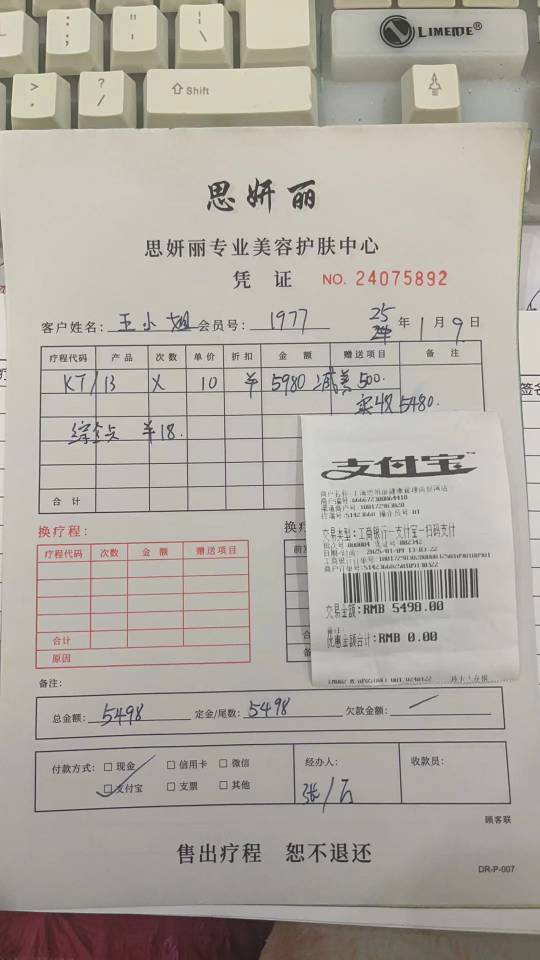 LIMEIDE®
>
.
?
/
Shift
思妍丽
思妍丽专业美容护肤中心
凭 证 NO. 24075892
客户姓名: 王小姐 会员号: 1977 25 年 1 月 9 日
疗程代码 产品 次数 单价 折扣 金额 赠送项目 备注
KT/B X 10 ¥ 5980 减美500.
实收5480.
综合点 ¥18.
合计
支付宝
交易类型: 工商银行-支付宝-扫码支付
日期/时间: 2025/01/09 13:03:22
交易金额: RMB 5498.00
优惠金额合计: RMB 0.00
换疗程:
疗程代码 次数 金额 赠送项目
合计
原因
备注:
总金额: 5498 定金/尾数: 5498 欠款金额: /
付款方式: □ 现金 □ 信用卡 □ 微信
☑ 支付宝 □ 支票 □ 其他
经办人: 收款员:
张/石
顾客联
售出疗程 恕不退还
DR-P-007